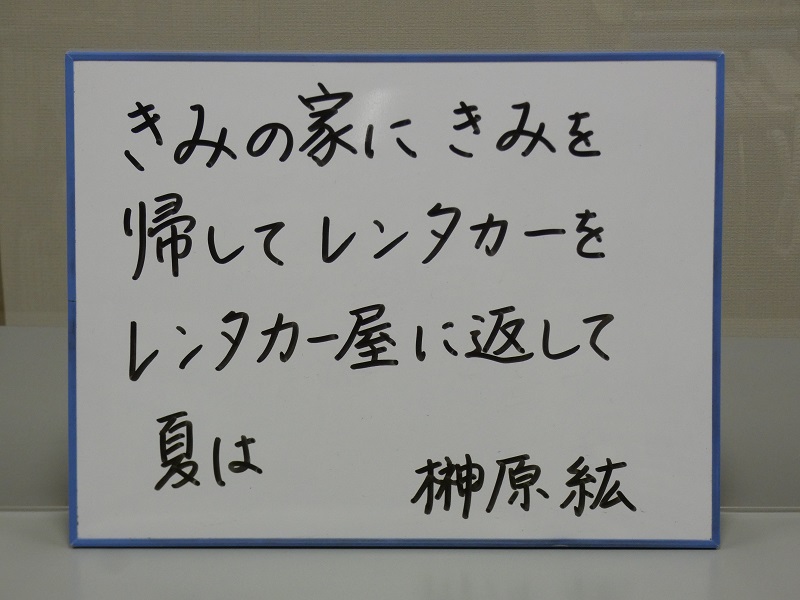 きみの家にきみを
帰してレンタカーを
レンタカー屋に返して
夏は
榊原紘